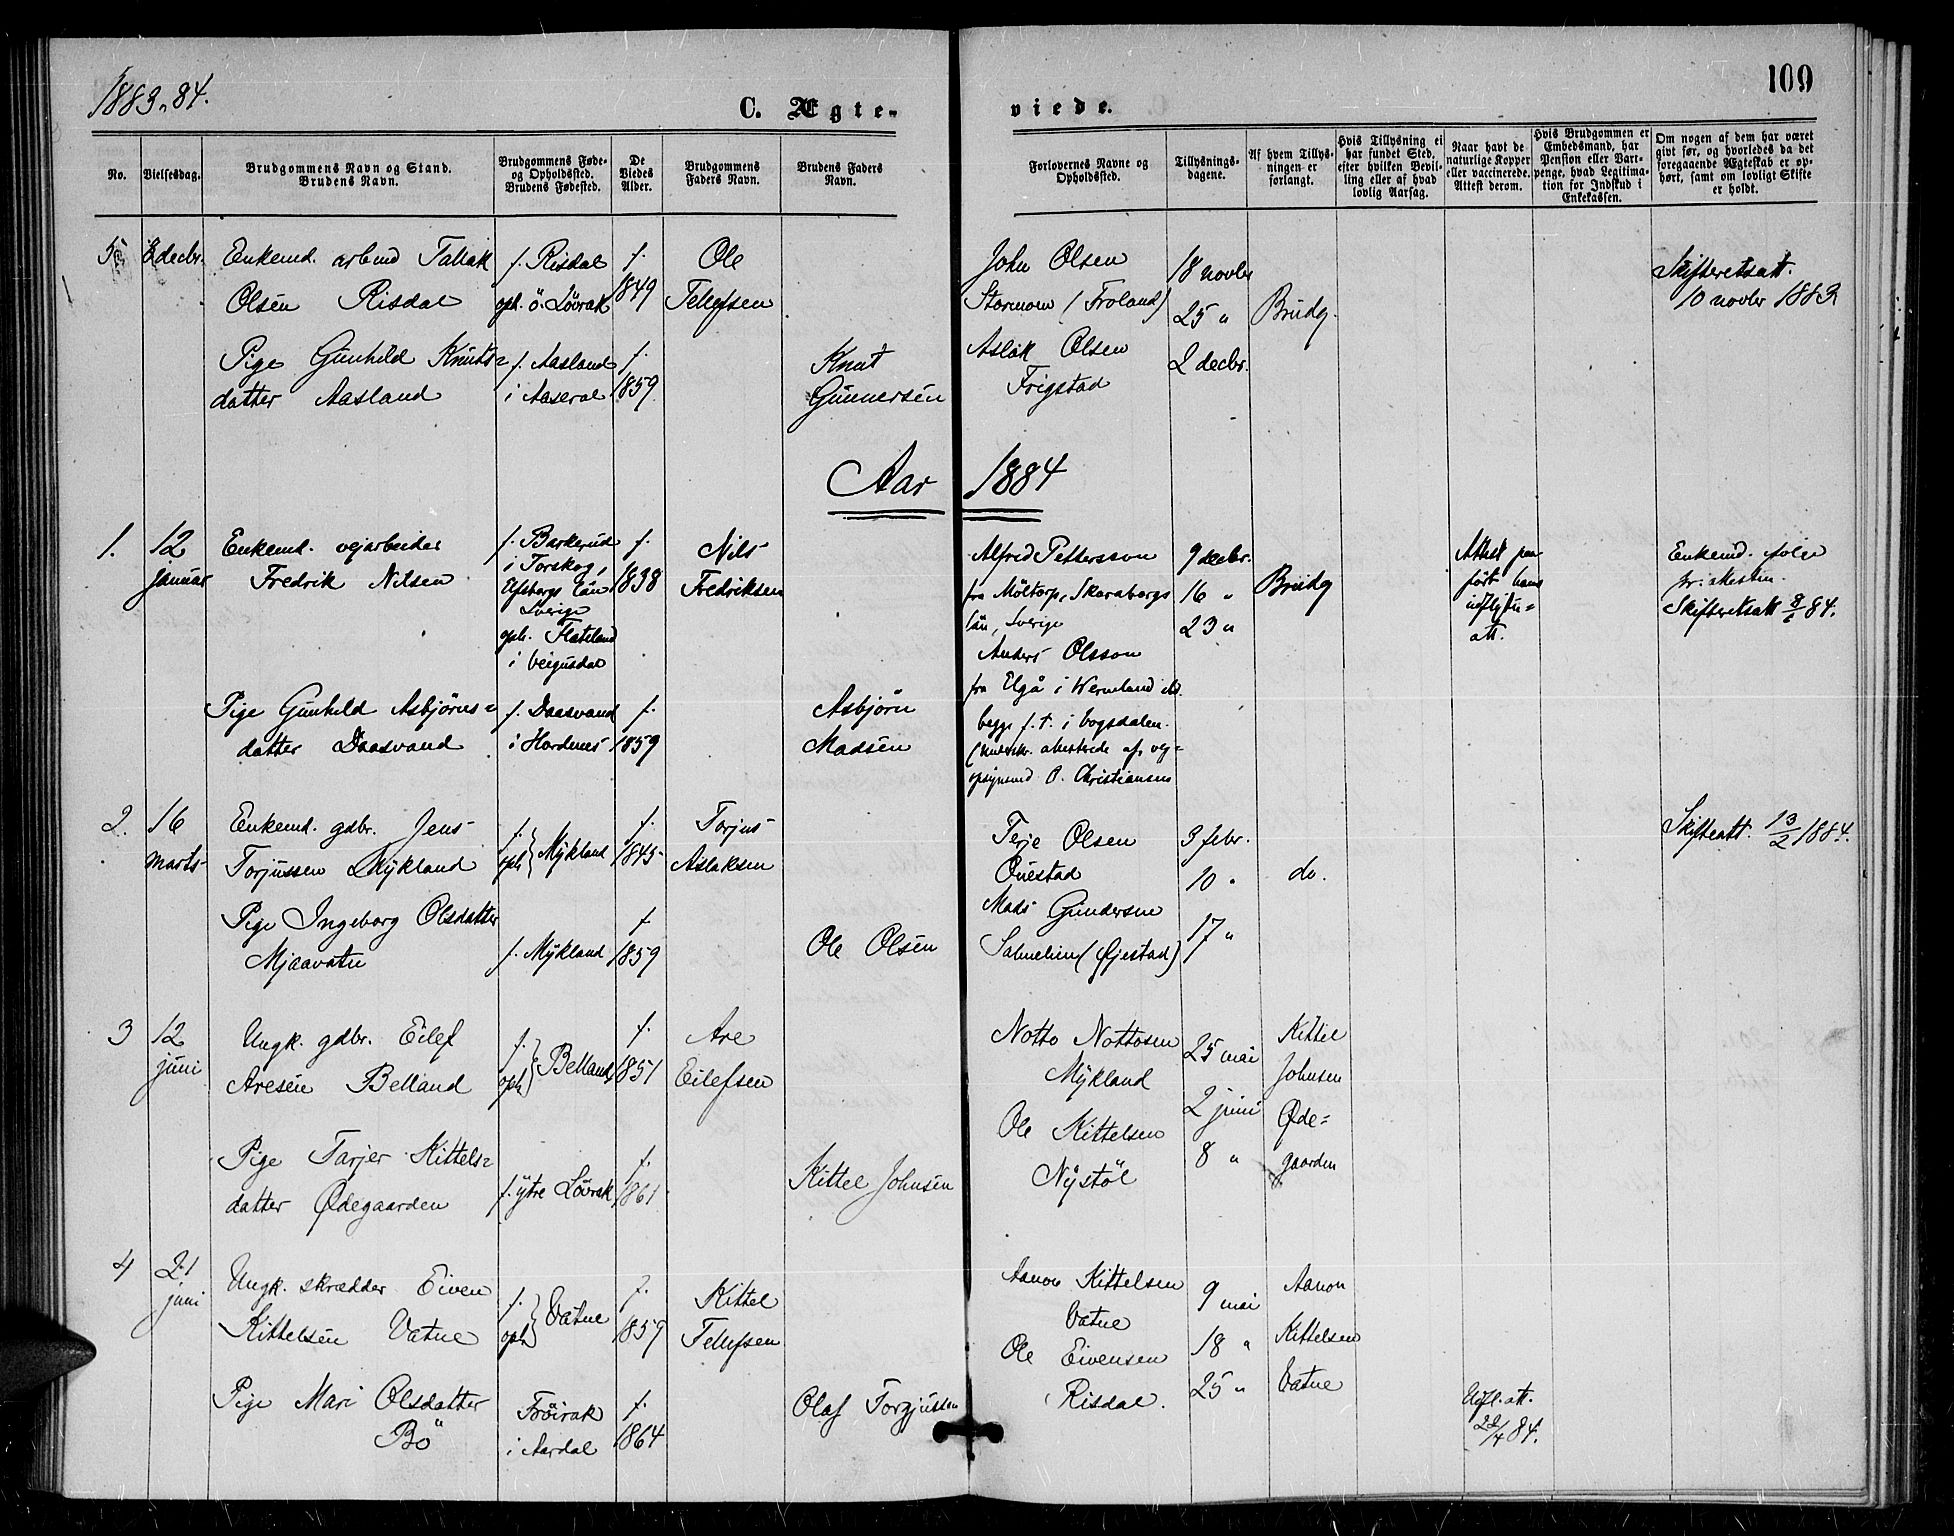 1883-84.
C. Ægte-
viede.
109
No.
Vielsesdag.
Brudgommens Navn og Stand.
Brudens Navn.
Brudgommens Føde-
og Opholdssted.
Brudens Fødested.
De
Viedes
Alder.
Brudgommens
Faders Navn.
Brudens Faders
Navn.
Forlovernes Navne og
Opholdssted.
Tillysnings-
dagene.
Af hvem Tillys-
ningen er
forlangt.
Hvis Tillysning ei
har fundet Sted,
efter hvilken Bevil-
ling eller af hvad
lovlig Aarsag.
Naar havt de
naturlige Kopper
eller vaccinerede.
Attest derom.
Hvis Brudgommen er
Embedsmand, har
Pension eller Vart-
penge, hvad Legitima-
tion for Indskud i
Enkekassen.
Om nogen af dem har været
givt før, og hvorledes da det
foregaaende Ægteskab er op-
hørt, samt om lovligt Skifte
er holdt.
5
2 decbr.
Enkemd. arbmd Tallak
Olsen Risdal
f. Risdal
oph. ö. Lövrak
f.
1849
Ole
Tellefsen
John Olsen
Stormoen (Froland)
18 novbr
25 "
2 decbr.
Brudg.
Skifteretsatt.
10 novbr 1883
Pige Gunhild Knuts=
datter Aasland
f. Aasland
i Aaseral
f.
1859
Knut
Gunnersen
Aslak Olsen
Frigstad
Aar 1884
1.
12
januar
Enkemd. vejarbeider
Fredrik Nilsen
f. Barkerud
i Torskog,
Elfsborgs län
Sverige
oph. Flateland
i Veigusdal
f.
1838
Nils
Fredriksen
Alfred Pettersson
fra Möltorp, Skaraborgs
län, Sverige
Anders Olsson
fra Elgå i Wermland
begge f. t. i Vogsdalen.
opsynsmd O. Christiansen
9 decbr.
16 "
23 "
Brudg
Attest paa
ført hans
indflytn=
att.
Enkemd. ifølge
Skifteretsatt 8/1 84.
Pige Gunhild Asbjörns=
datter Daasvand
f. Daasvand
i Hordenes
f.
1859
Asbjörn
Madsen
2.
16
marts
Enkemd. gdbr. Jens
Torjussen Mykland
f.
oph } Mykland
f.
1845
Torjus
Aslaksen
Terje Olsen
Ouestad
Mads Gundersen
(Øjestad)
3 febr.
10 "
17 "
do.
Skifteatt. 13/2 1884.
Pige Ingeborg Olsdatter
Mjaavatn
f. Mykland
f.
1859
Ole Olsen
3
12
juni
Ungk. gdbr. Eilef
Aresen Belland
f.
oph } Belland
f.
1851
Are
Eilefsen
Notto Nottosen
Mykland
Ole Kittelsen
Nystöl
25 mai
2 juni
8 "
Kittel
Johnsen
Øde=
gaarden
Pige Tarjer Kittels=
datter Ødegaarden
f. ytre Lövrak
f.
1861
Kittel Johnsen
4
21
juni
Ungk. skrædder Eiven
Kittelsen Vatne
f.
oph } Vatne
f.
1859
Kittel
Tellefsen
Aanon Kittelsen
Vatne
Ole Eivensen
Risdal.
9 mai
18 "
25 "
Aanon
Kittelsen
Vatne
Pige Mari Olsdatter
Bö
Fröirak
i Aardal
f.
1864
Olaf Torgjussen
Udfl. att.
22/4 84.